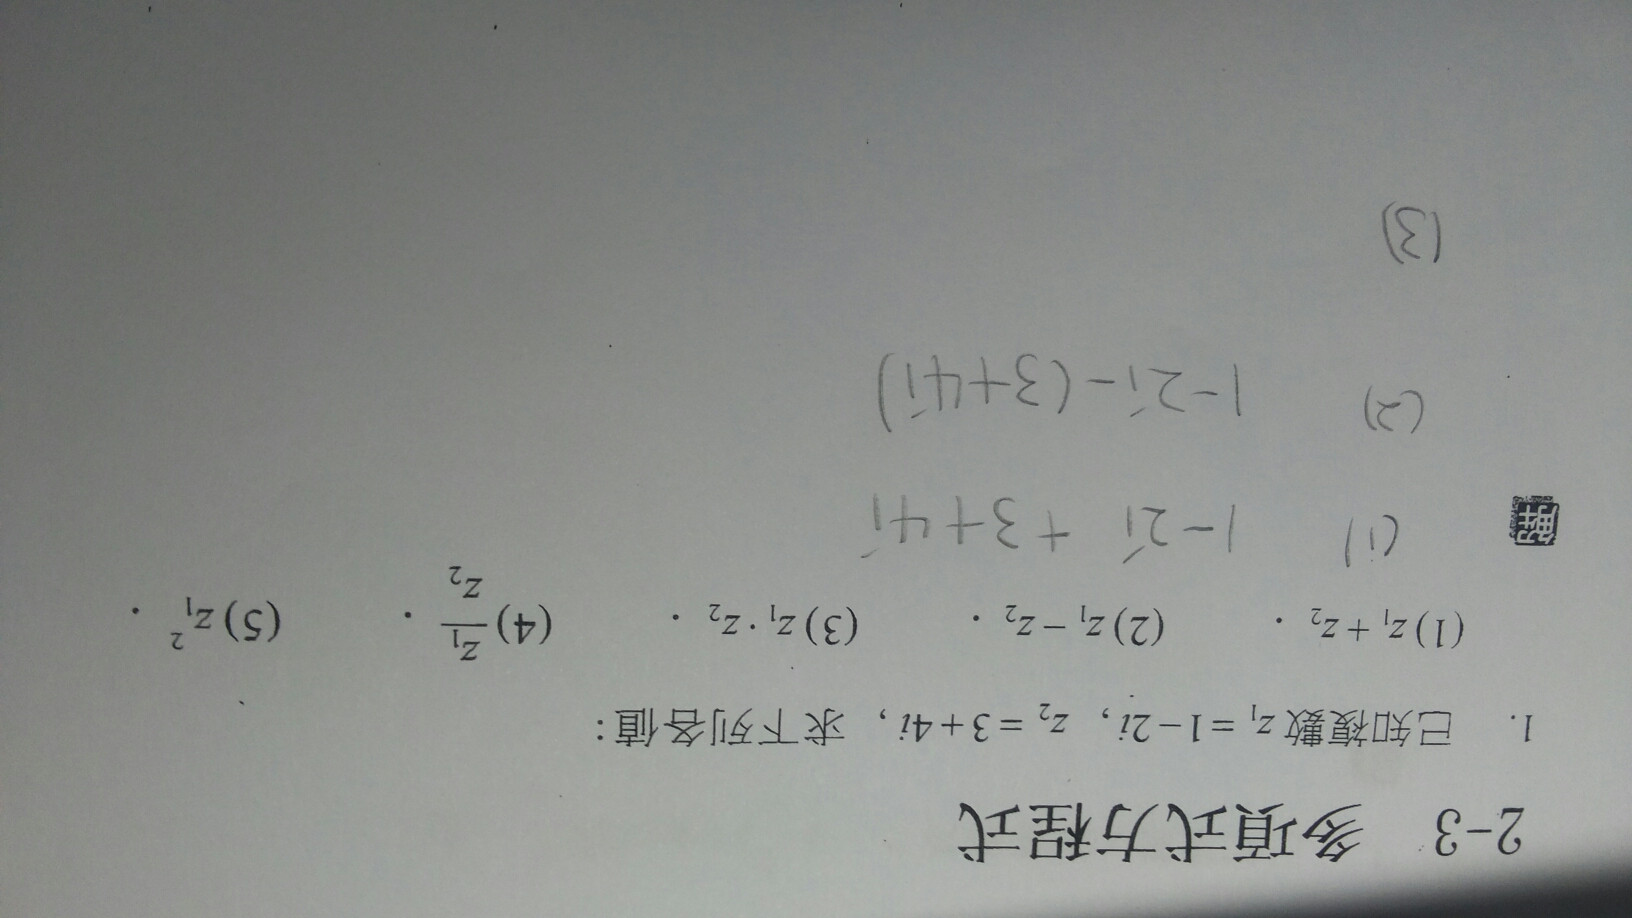 2-3 多項式方程式
1. 已知複數 z₁ = 1 − 2i，z₂ = 3 + 4i，求下列各值：
(1) z₁ + z₂． (2) z₁ − z₂． (3) z₁ · z₂． (4) z₁/z₂． (5) z₁²．
解 (1) 1 − 2i + 3 + 4i
(2) 1 − 2i − (3 + 4i)
(3)